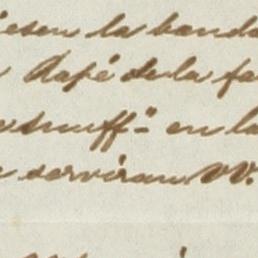 iesen la banda
Rapé de la fa
snuff" en la
serviran VV.